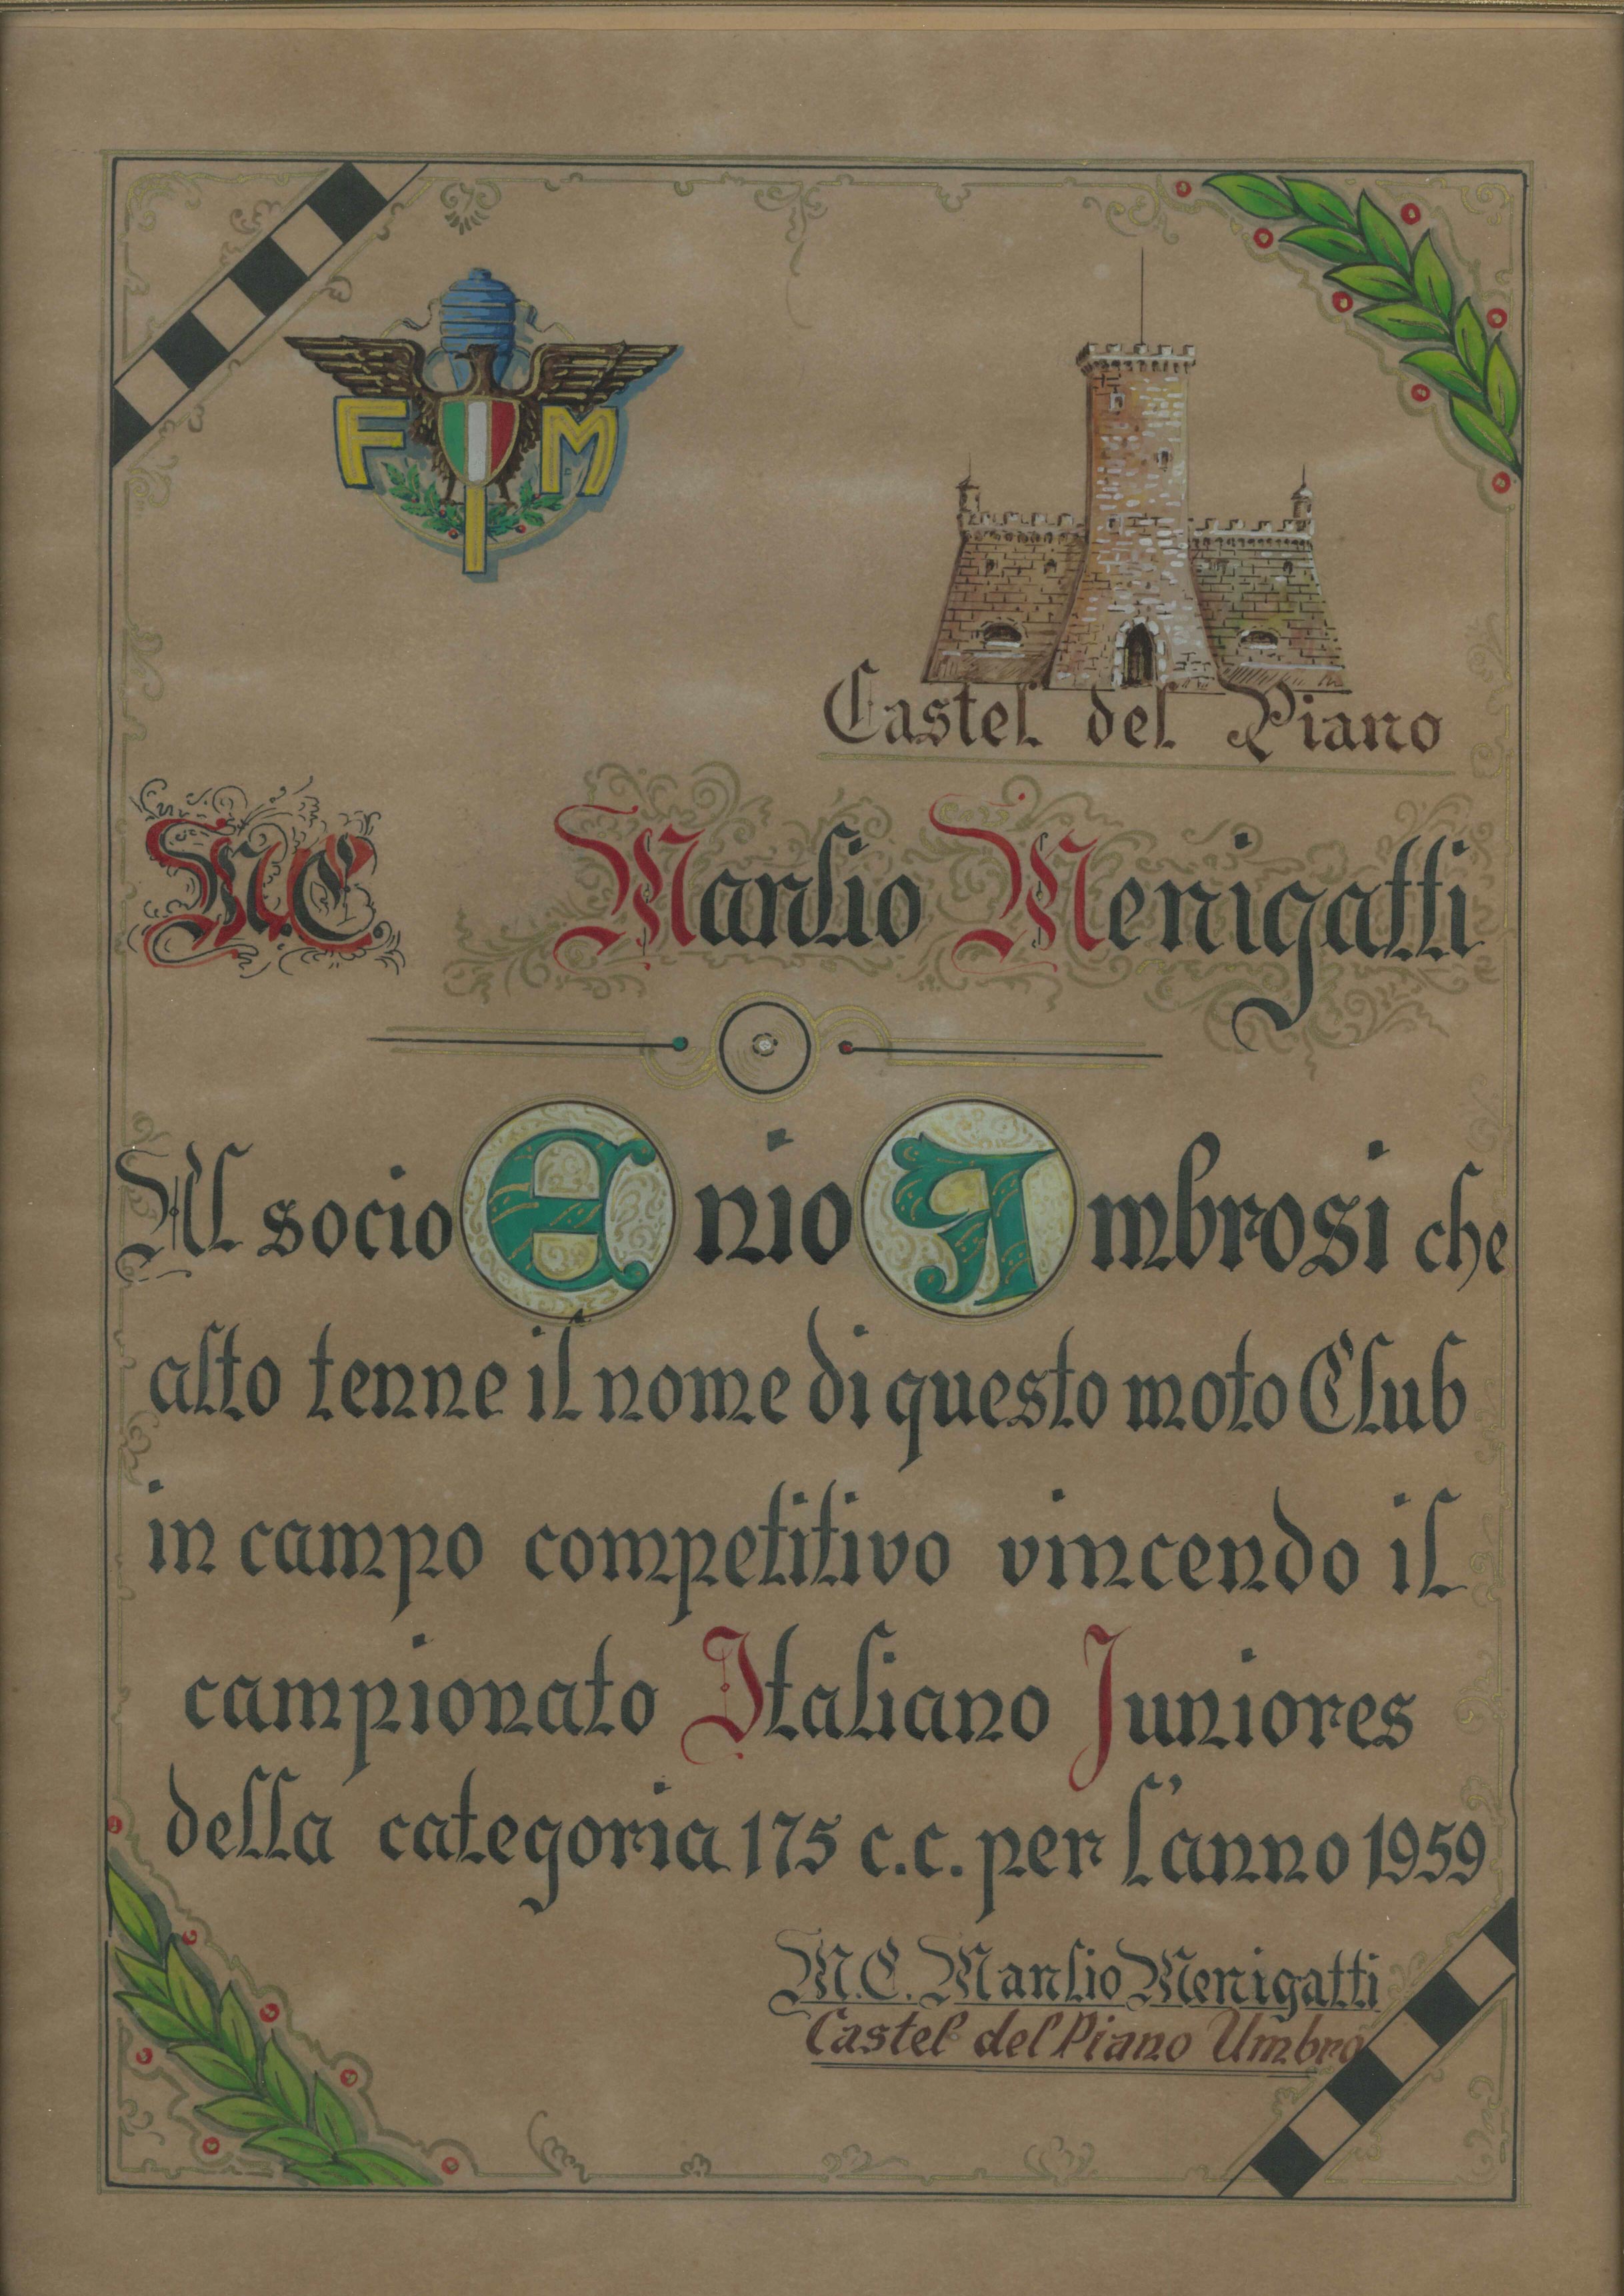 F I M
Castel del Piano
M.C. Manlio Menigatti
Al socio Enio Ambrosi che
alto tenne il nome di questo moto Club
in campo competitivo vincendo il
campionato Italiano Juniores
della categoria 175 c.c. per l'anno 1959
M.C. Manlio Menigatti
Castel del Piano Umbro